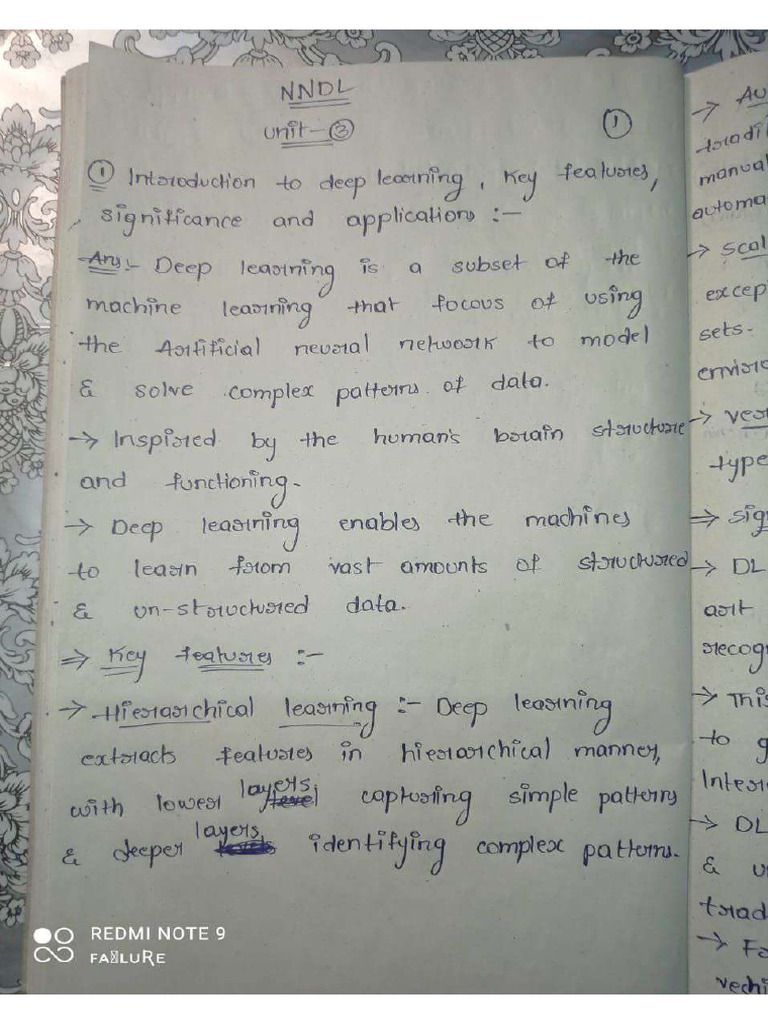 NNDL
Unit-③
①
① Introduction to deep learning, Key features,
significance and applications :-
Ans:- Deep learning is a subset of the
machine learning that focous of using
the Artificial neural network to model
& solve complex patterns of data.
→ Inspired by the human's brain structure
and functioning.
→ Deep learning enables the machines
to learn from vast amounts of structured
& un-structured data.
⇒ Key features :-
→ Hierarchical learning :- Deep learning
extracts features in hierarchical manner,
with lower layers capturing simple patterns
& deeper layers identifying complex patterns.
→ Au
tradi
manual
automa
→ scal
excep
sets.
enviro
→ ver
type
⇒ sig
→ DL
art
recog
→ This
to g
Inter
→ DL
& u
trad
→ Fo
vechi
REDMI NOTE 9